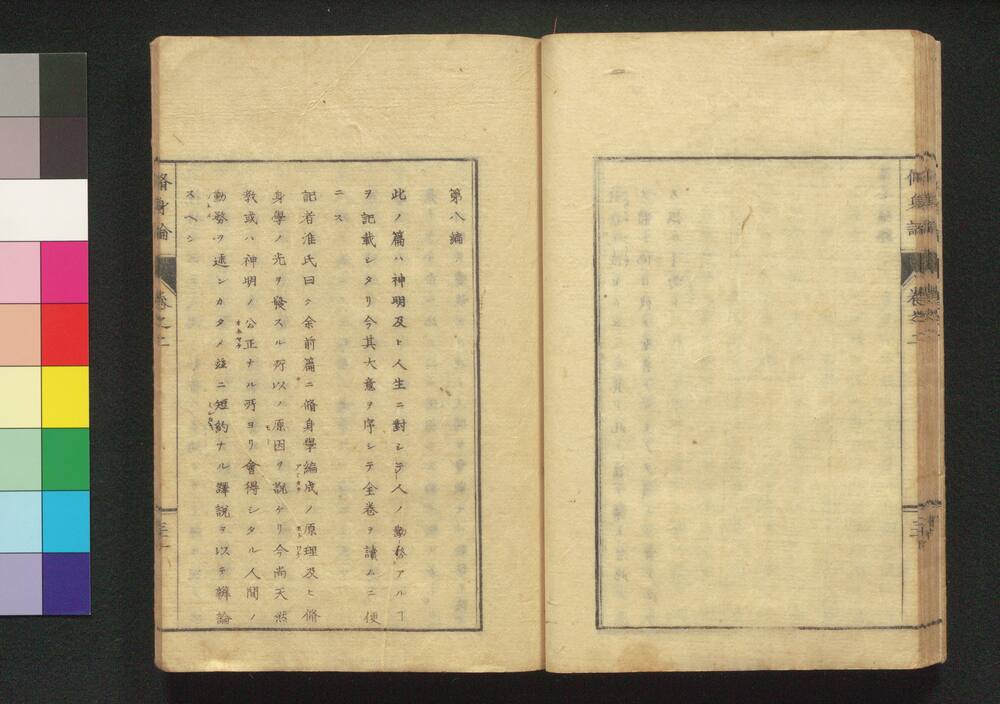 脩身論
卷之二
第八編
此ノ篇ハ神明及ヒ人生ニ對シテ人ノ勤務アルヿ
ヲ記載シタリ今其大意ヲ序シテ全卷ヲ讀ムニ便
ニス
記者准氏曰ク余前篇ニ脩身學編成ノ原理及ヒ脩
身學ノ光ヲ發スル所以ノ原因ヲ説ケリ今尚天然
教或ハ神明ノ公正ナル所ヨリ會得シタル人間ノ
勤務ヲ速ンカタメ茲ニ短約ナル譯説ヲ以テ辨論
スヘシ
脩身論
卷之二
三十一